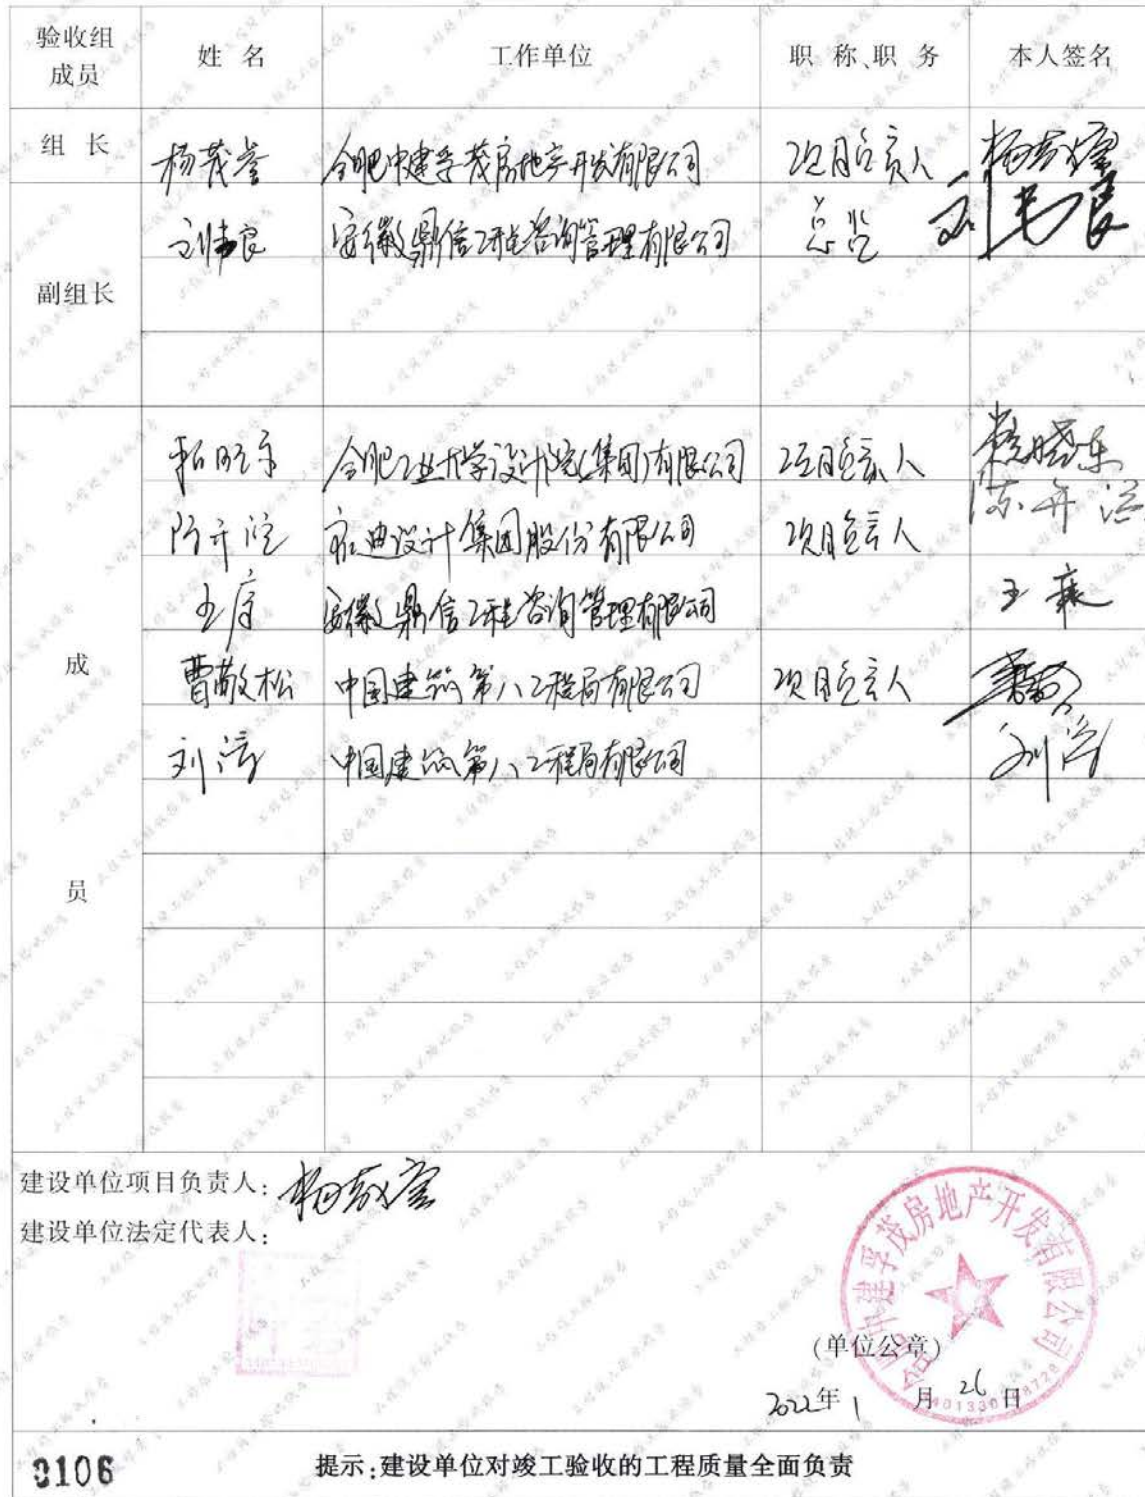 验收组成员 姓 名 工作单位 职 称、职 务 本人签名
组 长 杨茂 合肥中建孚茂房地产开发有限公司 项目负责人
刘伟良 安徽鼎信工程咨询管理有限公司 总监 刘伟良
副组长
合肥工业大学设计院(集团)有限公司 项目负责人 晓东
陈开 设计集团股份有限公司 项目负责人 陈开
王 安徽鼎信工程咨询管理有限公司 王
成 曹敬松 中国建筑第八工程局有限公司 项目负责人
刘涛 中国建筑第八工程局有限公司 刘涛
员
建设单位项目负责人:
建设单位法定代表人:
合肥中建孚茂房地产开发有限公司
(单位公章)
2022年1月26日
0106 提示:建设单位对竣工验收的工程质量全面负责